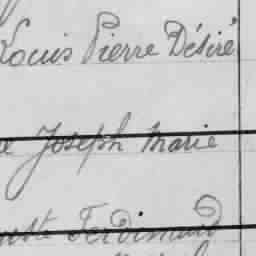 Louis Pierre Désiré
Joseph Marie
Ferdinand